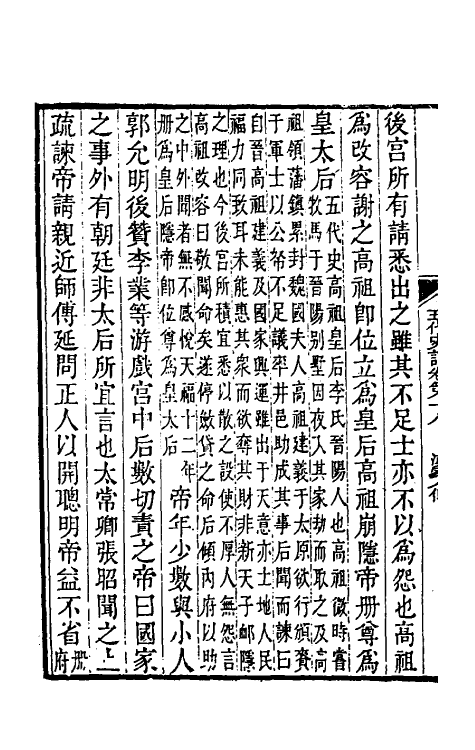 後宮所有請悉出之雖其不足士亦不以爲怨也高祖
爲改容謝之高祖卽位立爲皇后高祖崩隱帝册尊爲
皇太后
五代史高祖皇后李氏晉陽人也高祖微時嘗
牧馬于晉陽別墅因夜入其家劫而取之及高
祖領藩鎮累封魏國夫人高祖建義于太原欲行頒賚
于軍士以公帑不足議率井邑助成其事后聞而諫曰
自晉高祖建義及國家興運雖出于天意亦土地人民
福力同致耳未能惠其衆而欲奪其財非新天子卹隱
之理也今後宮所積宜悉以散之設使不厚人無怨言
高祖改容曰敬聞命矣遂停斂貸之命后傾內府以助
之中外聞者無不感悅天福十二年
册爲皇后隱帝卽位尊爲皇太后
帝年少數與小人
郭允明後贊李業等游戲宮中后數切責之帝曰國家
之事外有朝廷非太后所宜言也太常卿張昭聞之上
疏諫帝請親近師傅延問正人以開聰明帝益不省
册
府